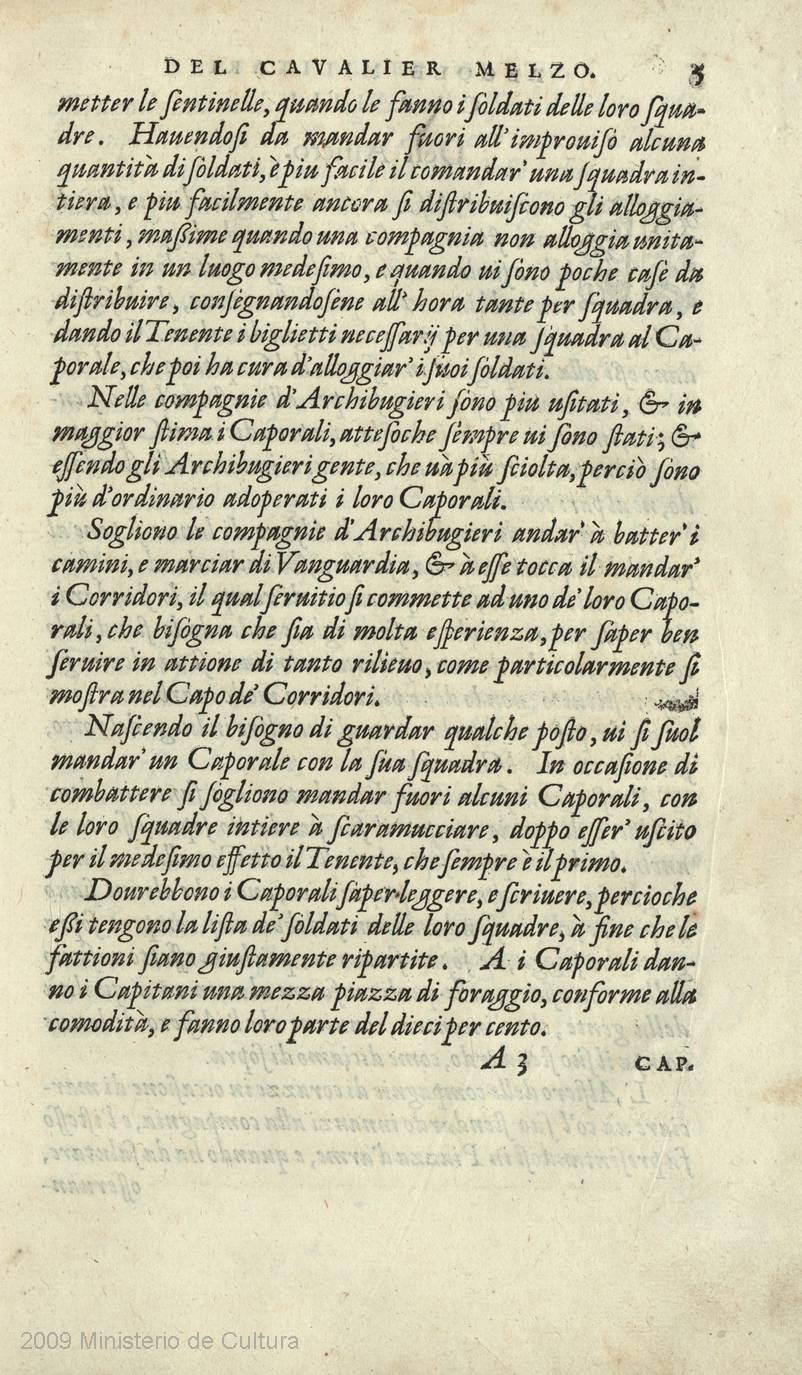 DEL CAVALIER MELZO. 5
metter le ſentinelle, quando le fanno i ſoldati delle loro ſqua-
dre. Hauendoſi da mandar fuori all'improuiſo alcuna
quantità di ſoldati, è piu facile il comandar' una ſquadra in-
tiera, e piu facilmente ancora ſi diſtribuiſcono gli alloggia-
menti, maßime quando una compagnia non alloggia unita-
mente in un luogo medeſimo, e quando ui ſono poche caſe da
diſtribuire, conſegnandoſene all' hora tante per ſquadra, e
dando il Tenente i biglietti neceſſarij per una ſquadra al Ca-
porale, che poi ha cura d'alloggiar' i ſuoi ſoldati.
Nelle compagnie d'Archibugieri ſono piu uſitati, & in
maggior ſtima i Caporali, atteſoche ſempre ui ſono ſtati; &
eſſendo gli Archibugieri gente, che uà più ſciolta, perciò ſono
più d'ordinario adoperati i loro Caporali.
Sogliono le compagnie d'Archibugieri andar' à batter' i
camini, e marciar di Vanguardia, & à eſſe tocca il mandar'
i Corridori, il qual ſeruitio ſi commette ad uno de' loro Capo-
rali, che biſogna che ſia di molta eſperienza, per ſaper ben
ſeruire in attione di tanto rilieuo, come particolarmente ſi
moſtra nel Capo de' Corridori.
Naſcendo il biſogno di guardar qualche poſto, ui ſi ſuol
mandar' un Caporale con la ſua ſquadra. In occaſione di
combattere ſi ſogliono mandar fuori alcuni Caporali, con
le loro ſquadre intiere à ſcaramucciare, doppo eſſer' uſcito
per il medeſimo effetto il Tenente, che ſempre è il primo.
Dourebbono i Caporali ſaper leggere, e ſcriuere, percioche
eßi tengono la liſta de' ſoldati delle loro ſquadre, à fine che le
fattioni ſiano giuſtamente ripartite. A i Caporali dan-
no i Capitani una mezza piazza di foraggio, conforme alla
comodità, e fanno loro parte del dieci per cento.
A 3 CAP.
2009 Ministerio de Cultura